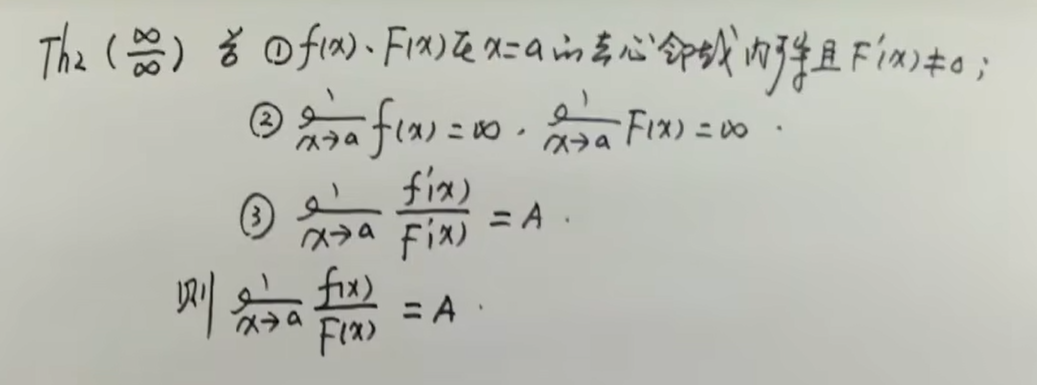 Th2 (∞/∞) 若 ①f(x)、F(x)在x=a的去心邻域内可导且F'(x)≠0;
② lim x→a f(x)=∞,lim x→a F(x)=∞.
③ lim x→a f'(x)/F'(x) = A.
则 lim x→a f(x)/F(x) = A.